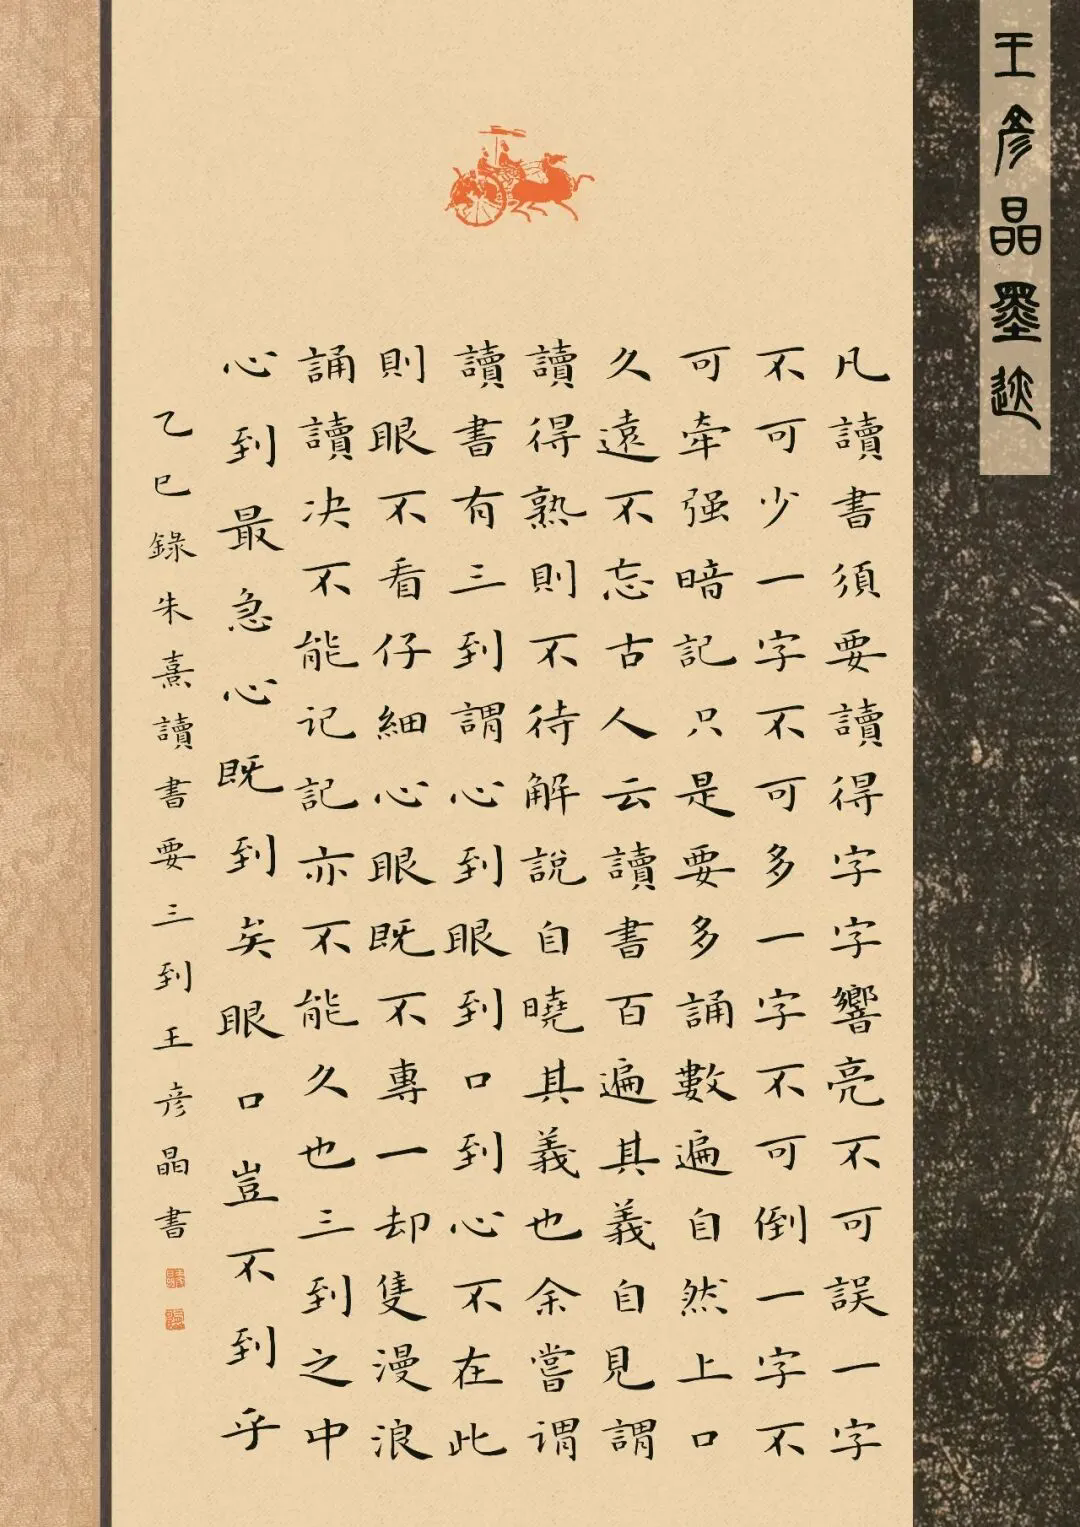 王彦晶墨迹
凡讀書須要讀得字字響亮不可誤一字
不可少一字不可多一字不可倒一字不
可牽强暗記只是要多誦數遍自然上口
久遠不忘古人云讀書百遍其義自見謂
讀得熟則不待解説自曉其義也余嘗谓
讀書有三到謂心到眼到口到心不在此
則眼不看仔細心眼既不專一却隻漫浪
誦讀决不能记記亦不能久也三到之中
心到最急心既到矣眼口豈不到乎
乙巳錄朱熹讀書要三到王彦晶書